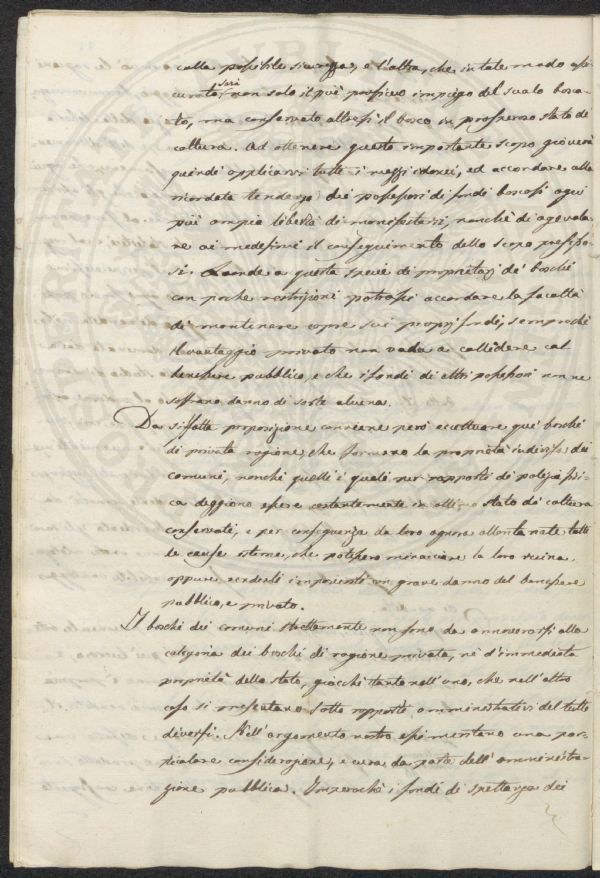 colla possibile sicurezza, e l'altra, che in tale modo assi
curato sarà non solo il più proficuo impiego del suolo bosca-
to, ma conservato altresì il bosco in prosperoso stato di
coltura. Ad ottenere questo importante scopo gioverà
quindi applicarvi tutti i mezzi idonei, ed accordare alla
ricordata tendenza dei possessori di fondi boscosi ogni
più ampia libertà di manifestarsi, nonchè di agevola-
re ai medesimi il conseguimento dello scopo prefisso-
si. Laonde a questa specie di proprietarj de' boschi
con poche restrizioni potrassi accordare la facoltà
di mantenere capre sui proprj fondi, semprechè
il vantaggio privato non vada a collidere col
benessere pubblico, e che i fondi di altri possessori non ne
soffrano danno di sorte alcuna.
Da siffatta proposizione conviene però eccettuare que' boschi
di privata ragione che formano la proprietà indivisa dei
comuni, nonchè quelli i quali per rapporti di polizia fisi-
ca deggiono essere costantemente in ottimo stato di coltura
conservati, e per conseguenza da loro ognora allontanate tutte
le cause esterne, che potessero minacciare la loro rovina,
oppure renderli imponenti con grave danno del benessere
pubblico, e privato.
I boschi dei comuni strettamente non sono da annoverarsi alla
categoria dei boschi di ragione privata, nè d'immediata
proprietà dello stato, giacchè tanto nell'uno, che nell'altro
caso si presentano sotto rapporti amministrativi del tutto
diversi. Nell'argomento nostro esperimentano una par-
ticolare considerazione, e cura da parte dell'amministra-
zione pubblica. Imperochè i fondi di spettanza dei